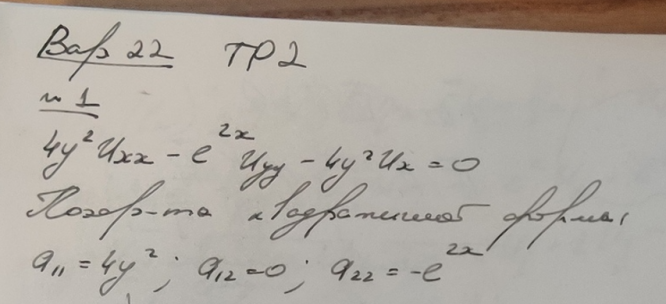 Вар 22 ТР2
№ 1
4y² Uxx - e^2x Uyy - 4y² Ux = 0
квадратичной формы
a₁₁ = 4y² ; a₁₂ = 0 ; a₂₂ = -e^2x